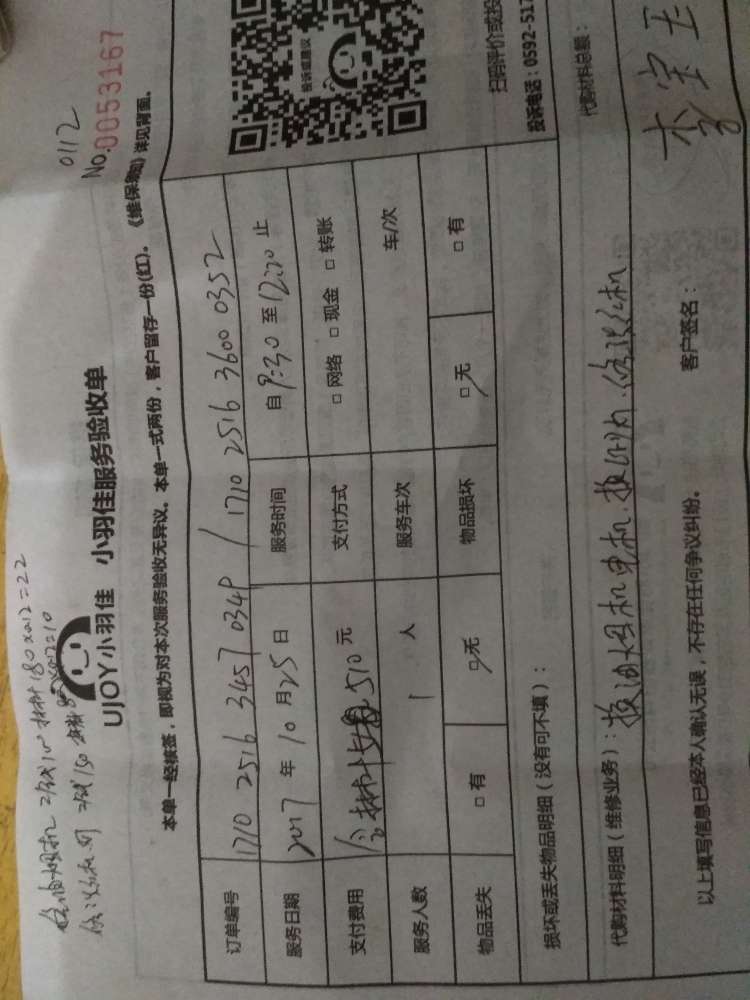 0112
No.0053167
180×0.12=22
UJOY小羽佳 小羽佳服务验收单
本单一经核签，即视为对本次服务验收无异议。本单一式两份，客户留存一份(红)。《维保须知》详见背面。
订单编号 1710 2516 3457 0349 / 1710 2516 3600 0352
服务日期 2017 年 10 月 25 日 服务时间 自 9:30 至 12:20 止
支付费用 510 元 支付方式 □ 网络 □ 现金 □ 转账
服务人数 1 人 服务车次 车/次
物品丢失 □ 有 □ 无 物品损坏 □ 无 □ 有
损坏或丢失物品明细（没有可不填）：
代购材料明细（维修业务）：换油烟机电机
代购材料总额：
以上填写信息已经本人确认无误，不存在任何争议纠纷。 客户签名： 李宝玉
投诉或建议
扫码评价或投
投诉电话：0592-517